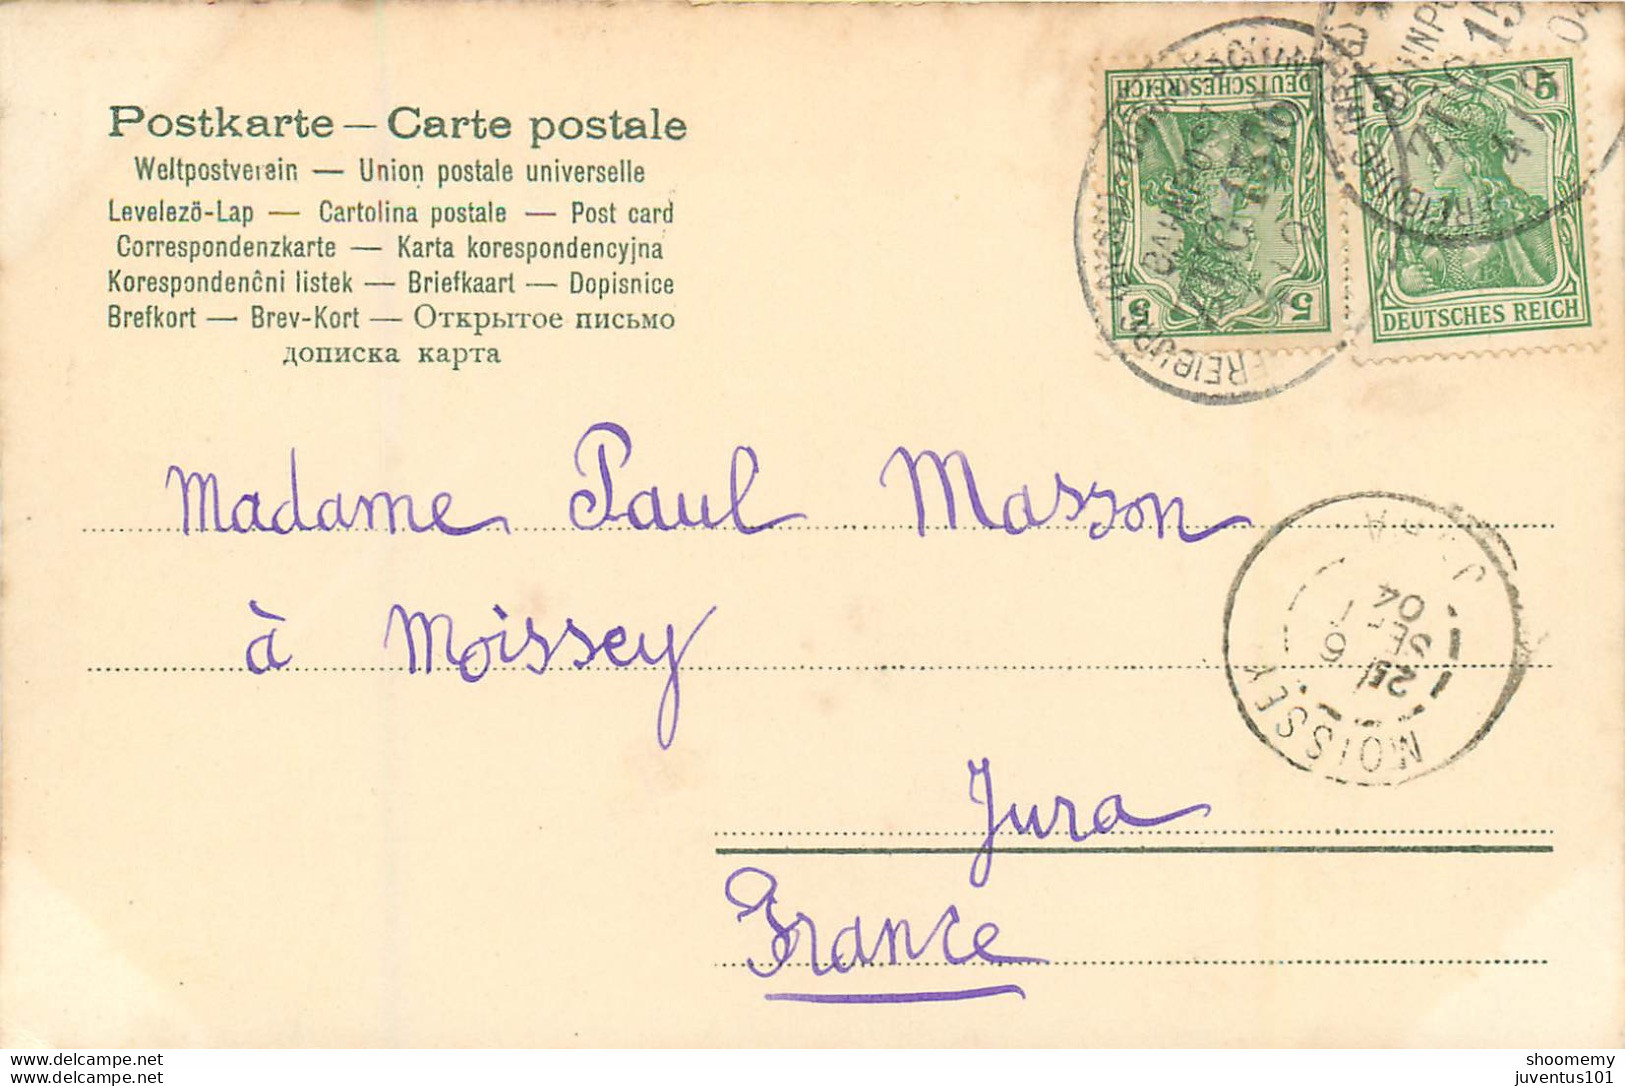 Postkarte — Carte postale
Weltpostverein — Union postale universelle
Levelezö-Lap — Cartolina postale — Post card
Correspondenzkarte — Karta korespondencyjna
Korespondenĉni listek — Briefkaart — Dopisnice
Brefkort — Brev-Kort — Открытое письмо
дописка карта
DEUTSCHES REICH
5 5
5 5
DEUTSCHES REICH
BAHNPOST
ZUG 1526
FREIBURG
BAHNPO
ZUG 15
FREIBURG
04
Madame Paul Masson
à Moissey
Jura
France
MOISSEY
JURA
25
SEPT
04
delcampe.net
delcampe.net
shoomemy
juventus101